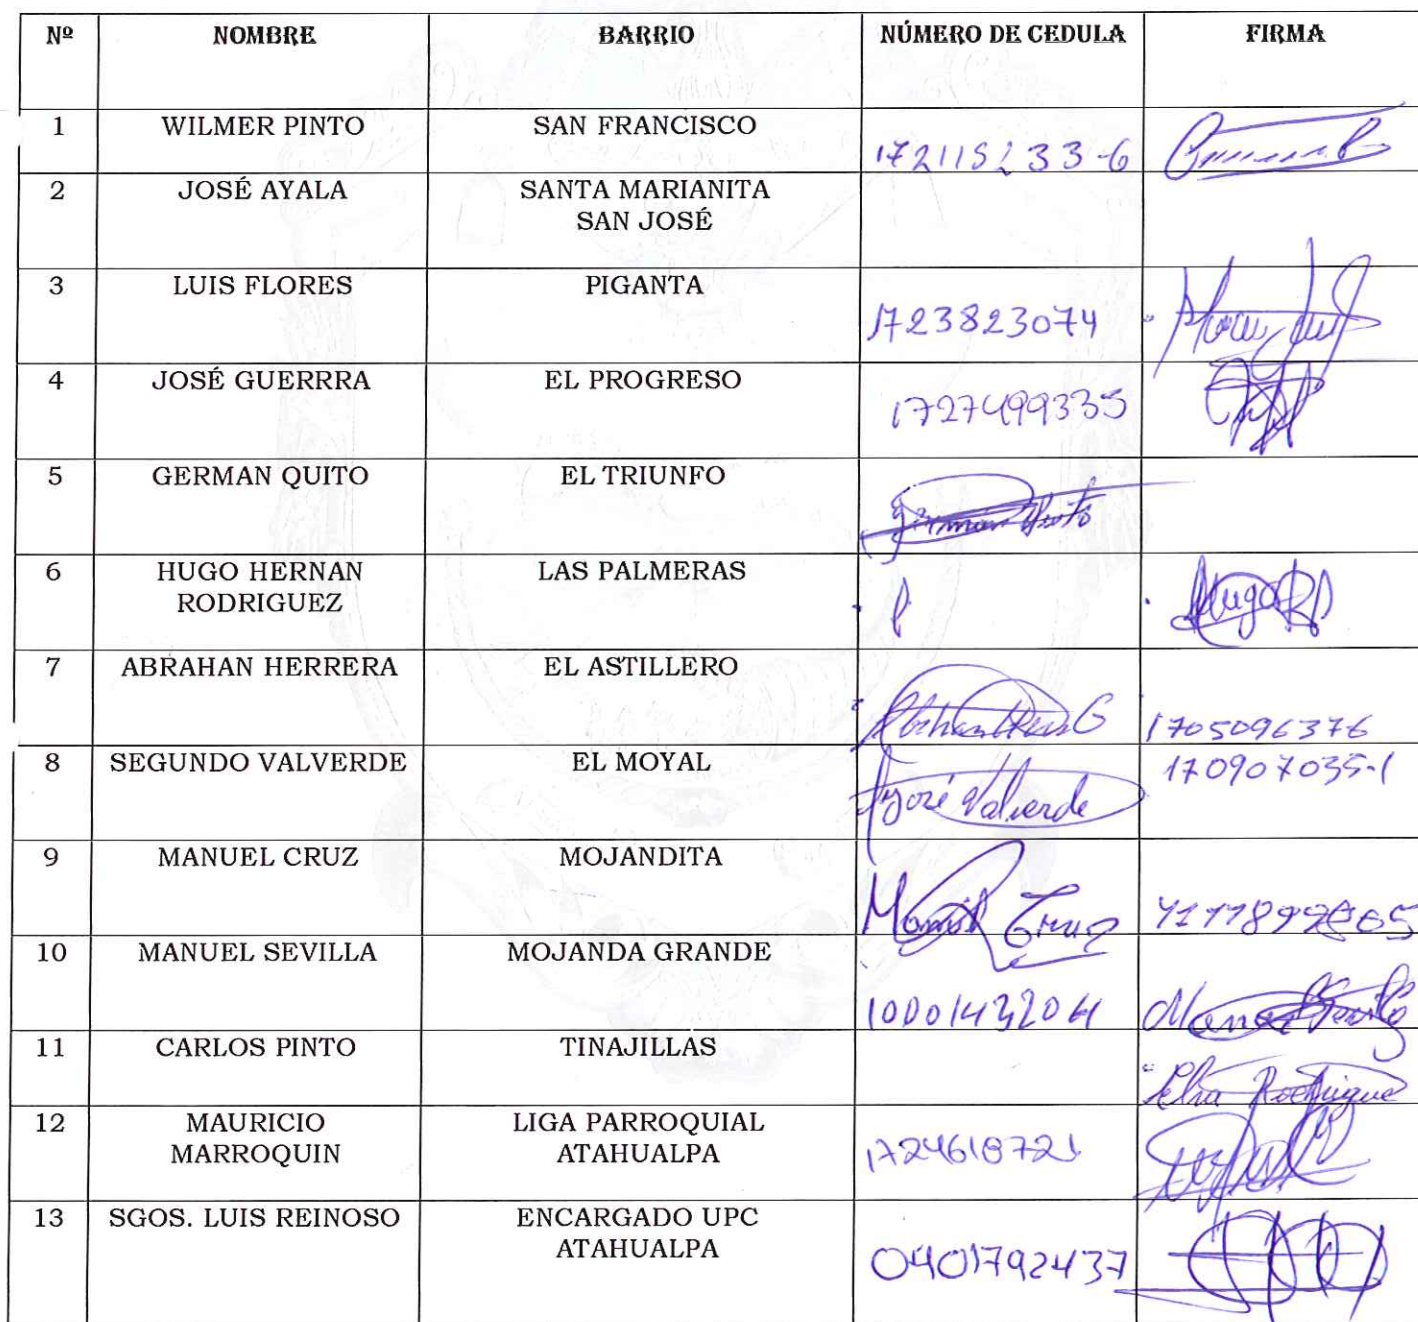 Nº NOMBRE BARRIO NÚMERO DE CEDULA FIRMA
1 WILMER PINTO SAN FRANCISCO 172115233-6
2 JOSÉ AYALA SANTA MARIANITA
SAN JOSÉ
3 LUIS FLORES PIGANTA 1723823074
4 JOSÉ GUERRRA EL PROGRESO 1727499335
5 GERMAN QUITO EL TRIUNFO German Quito
6 HUGO HERNAN LAS PALMERAS Hugo
RODRIGUEZ
7 ABRAHAN HERRERA EL ASTILLERO 1705096376
8 SEGUNDO VALVERDE EL MOYAL José Valverde 170907035-1
9 MANUEL CRUZ MOJANDITA Manuel Cruz
10 MANUEL SEVILLA MOJANDA GRANDE 1000143204 Manuel Sevilla
11 CARLOS PINTO TINAJILLAS Rodriguez
12 MAURICIO LIGA PARROQUIAL 1724618721
MARROQUIN ATAHUALPA
13 SGOS. LUIS REINOSO ENCARGADO UPC 0401792437
ATAHUALPA